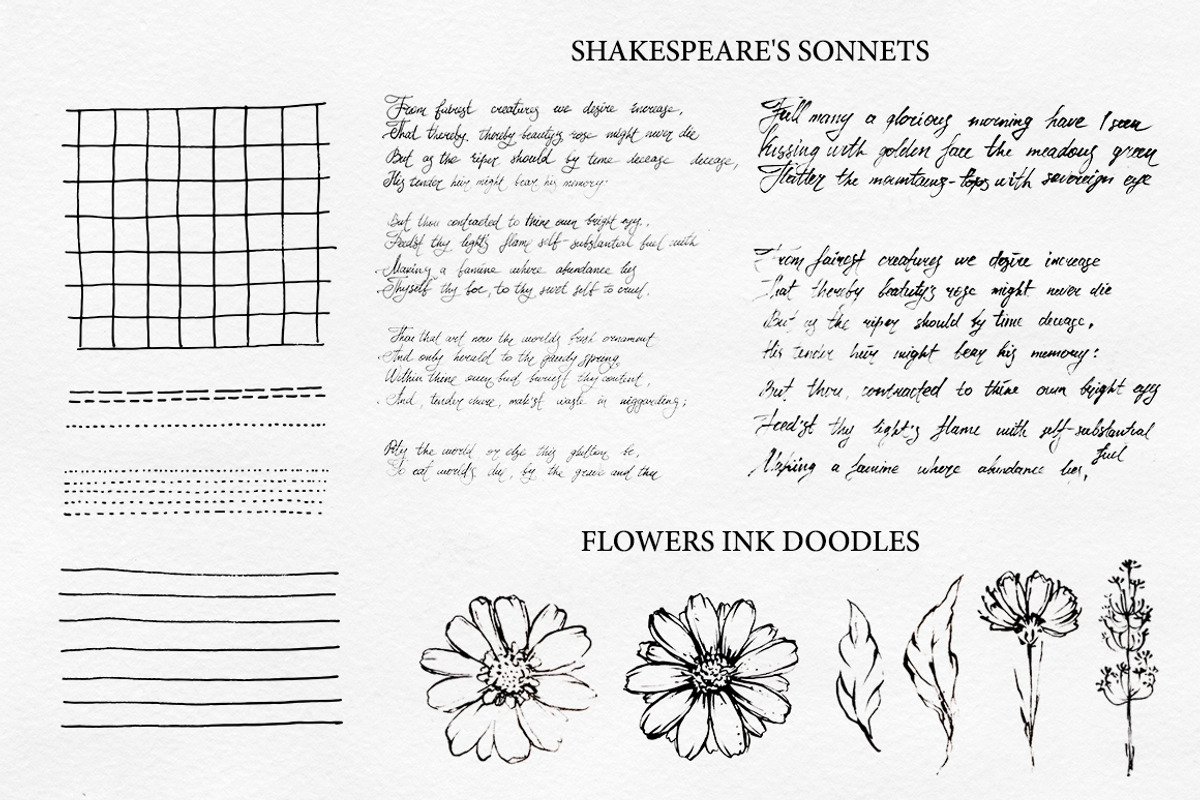 SHAKESPEARE'S SONNETS
From fairest creatures we desire increase,
That thereby thereby beauty's rose might never die
But as the riper should by time decease decease,
His tender heir might bear his memory:
But thou contracted to thine own bright eyes,
Feedst thy light's flame self-substantial fuel with
Making a famine where abundance lies
Thyself thy foe, to thy swet self to cruel.
Thou that art now the worlds fresh ornament
And only herald to the gaudy spring,
Within thine own bud buriest thy content,
And, tender chure, mak'st waste in niggarding;
Pity the world or else this glutton be,
To eat worlds due, by the grave and thee
Full many a glorious morning have I seen
Kissing with golden face the meadows green
Flatter the mountains-tops with sovereign eye
From fairest creatures we desire increase
That thereby beatuty's rose might never die
But as the riper should by time decease,
His tender heir might bear his memory:
But thou, contracted to thine own bright eyes
Feed'st thy light's flame with self-substantial fuel
Making a famine where abundance lies,
FLOWERS INK DOODLES